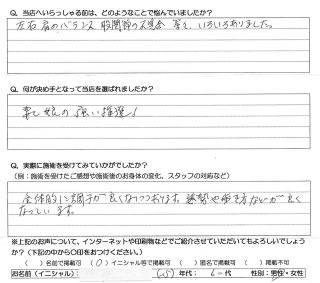 Q. 当店へいらっしゃる前は、どのようなことで悩んでいましたか?
左右肩のバランス 股関節の不具合 等々、いろいろありました。
Q. 何が決め手となって当店を選ばれましたか?
妻と娘の強い推進!
Q. 実際に施術を受けてみていかがでしたか?
(例:施術を受けたご感想や施術後のお身体の変化、スタッフの対応など)
全体的に調子が良くなりつつあります。姿勢や歩き方などが良く
なっています。
※上記のお声について、インターネットや印刷物などでご紹介させていただいてもよろしいでしょう
か?(下記の中から〇印をおつけください。)
( )名前で掲載可 (〇)イニシャル等で掲載可 ( )匿名で掲載可 ( )掲載不可
お名前(イニシャル): 年代: 6-代 性別:男性・女性